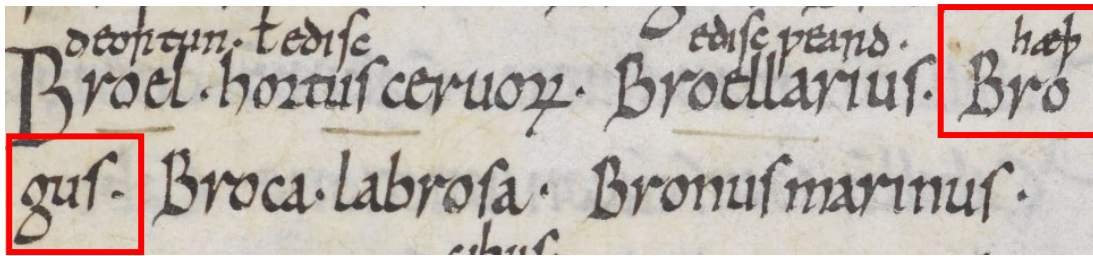 deortun · ł edisc ediscƿeard · hæþ
Broel · hortus ceruoꝝ · Broellarius · Bro
gus · Broca · labrosa · Bronus marinus ·